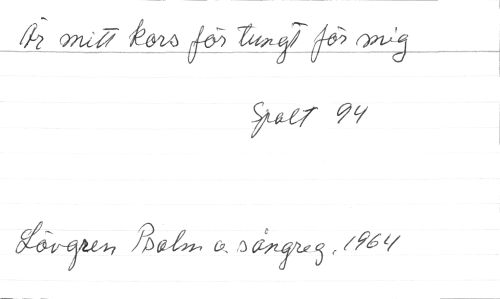 Är mitt kors för tungt för mig
Spalt 94
Lövgren Psalm o. sångreg. 1964